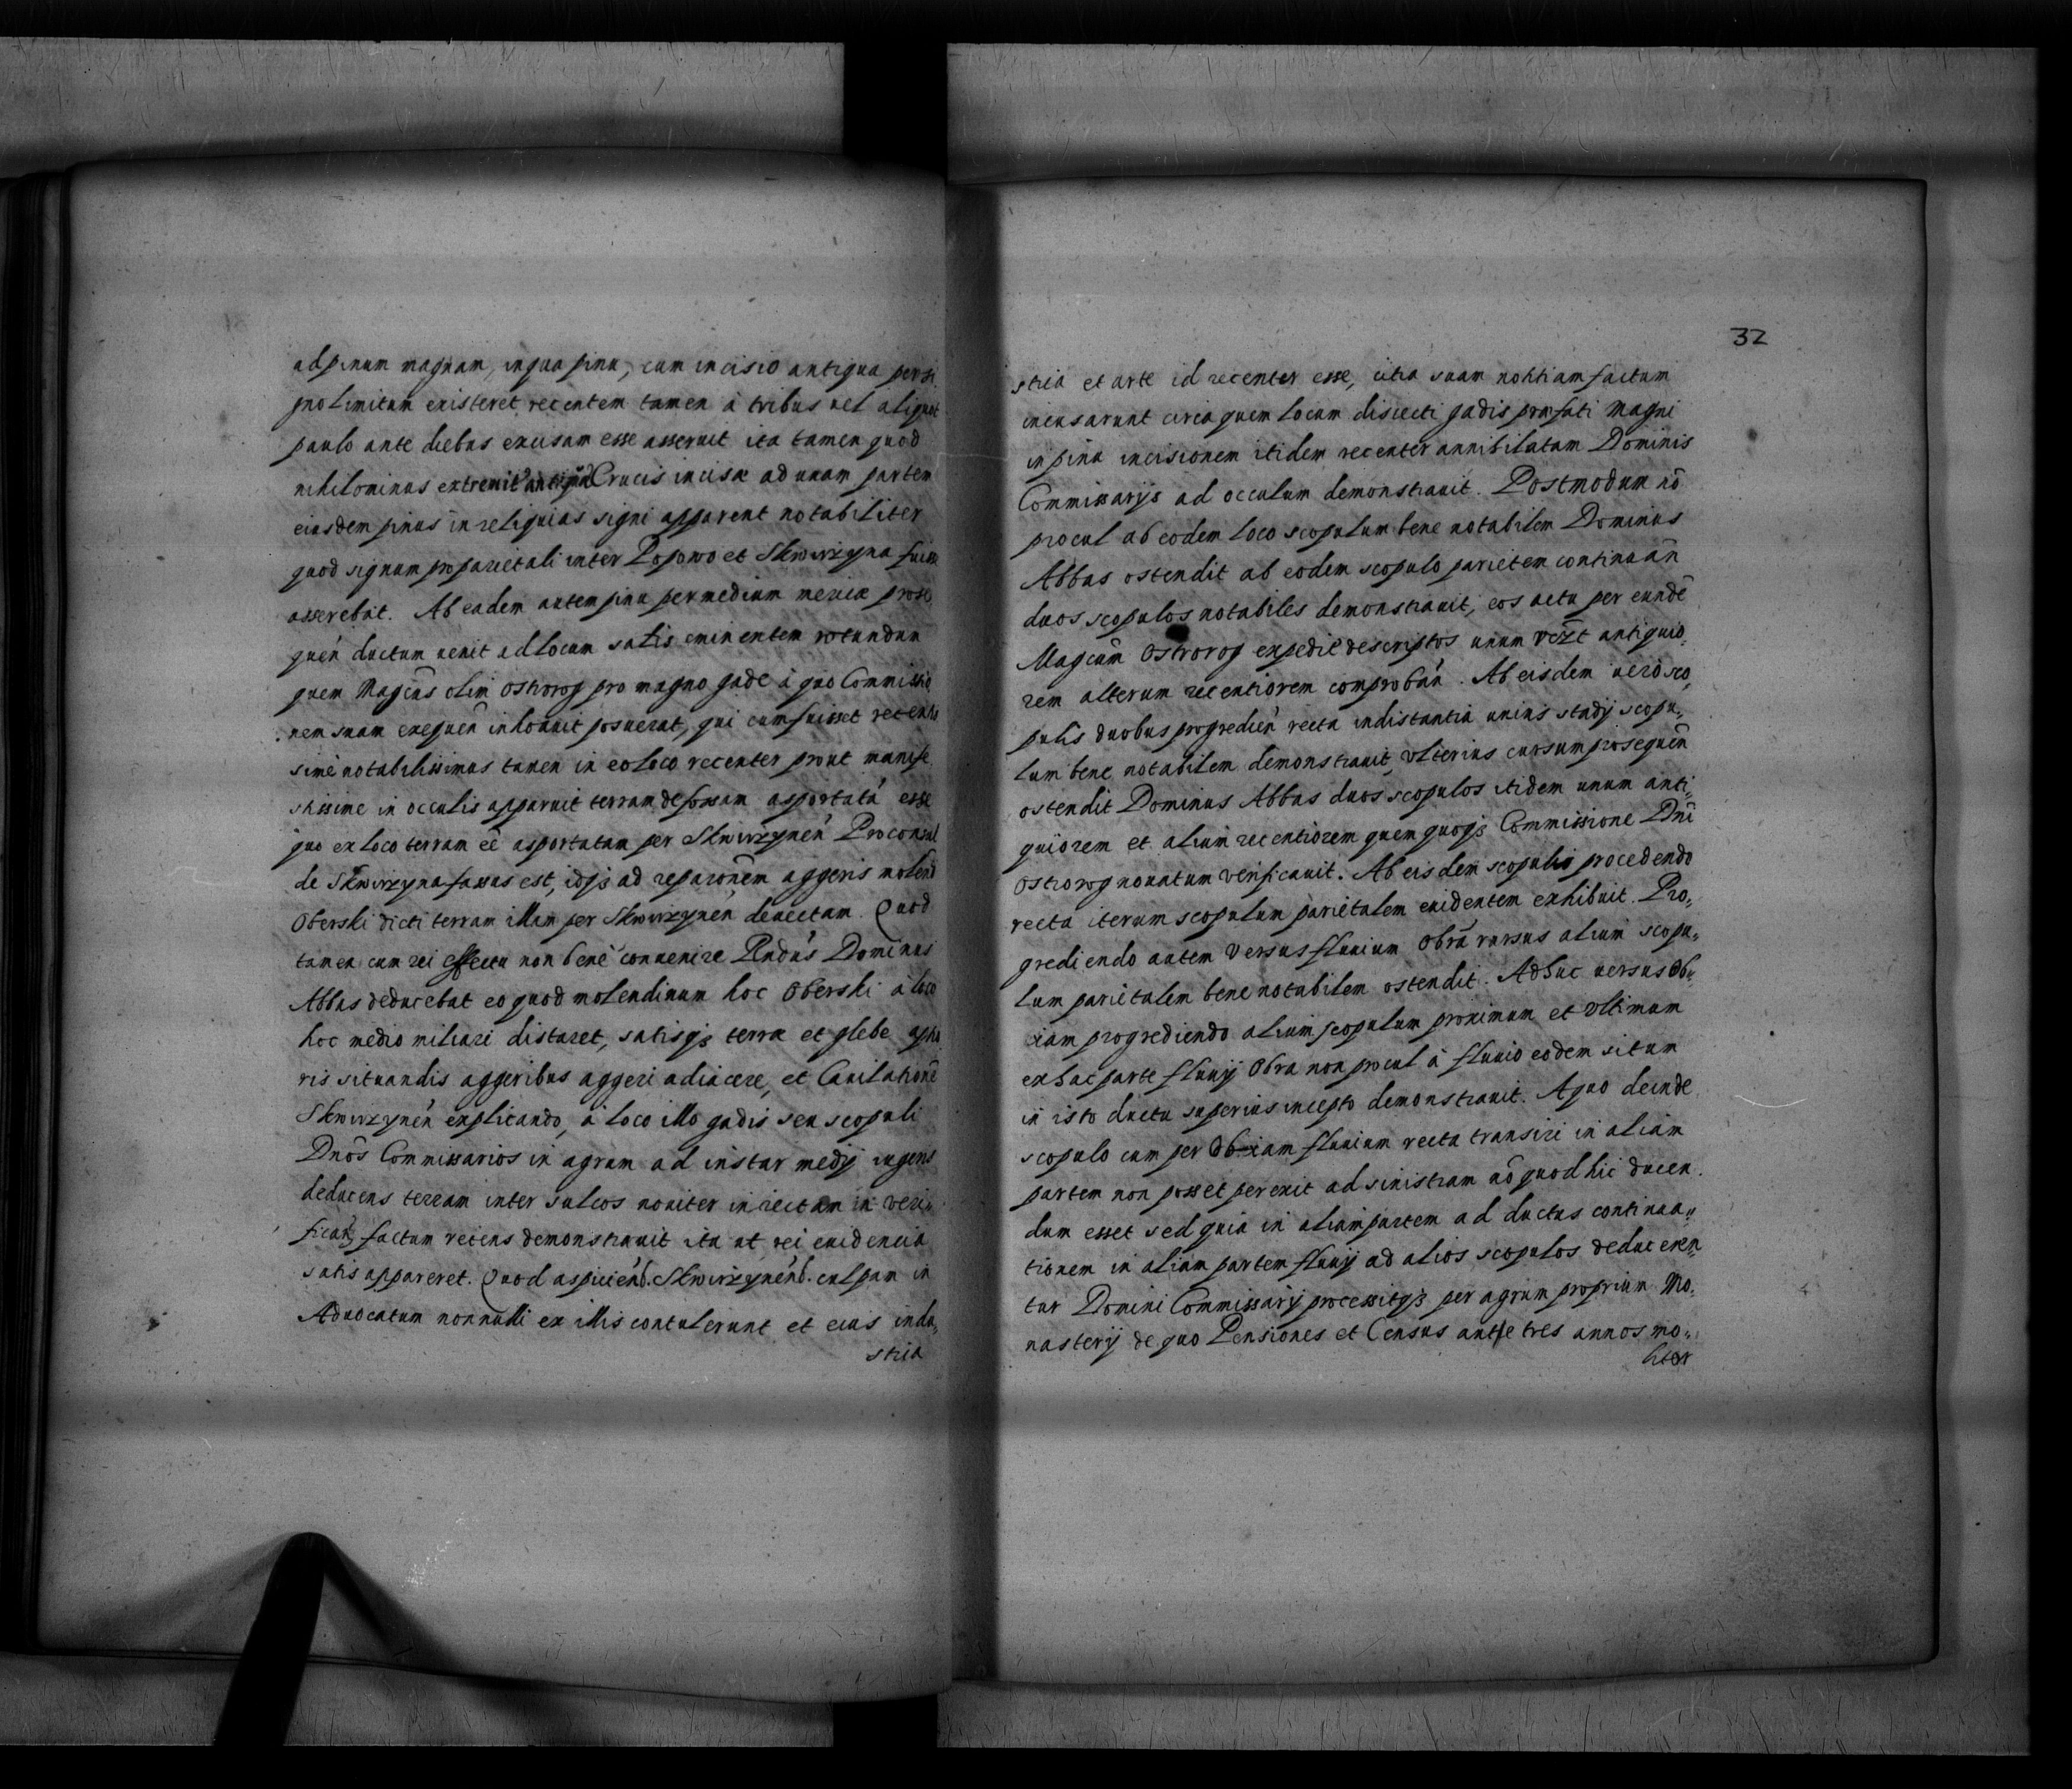 ad pinum magnam, in qua pinu, cum incisio antiqua per si
gno limitum existeret, recentem tamen à tribus uel aliquot
paulo ante diebus excisam esse asseruit ita tamen quod
nihilominus extremit antiqua Crucis incisæ ad unam partem
eiusdem pinus in reliquias signi apparent notabiliter
quod signum pro parietali inter Popowo et Skwirzyna fuisse
asserebat. Ab eadem autem pinu per medium mericæ prose
quen ductum uenit ad locum satis eminentem rotundum
quem Magcus olim Ostrorog pro magno gade à quo Commissio
nem suam exequen inhoauit posuerat, qui cum fuisset recentis
sime notabilissimus tamen in eo loco recenter prout manife
stissime in occulis apparuit terram defossam asportatá esse
quo ex loco terram eē asportatam per Skwirzynen Proconsul
de Skwirzyna fassus est, idqȝ ad reparōnem aggeris molend
Oberski dicti terram illam per Skwirzynen deuectam. Quod
tamen cum rei effectu non bene conuenire Rndus Dominus
Abbas deducebat eo quod molendinum hoc Oberski à loco
hoc medio miliari distaret, satisqȝ terræ et glebe aptio
ris situandis aggeribus aggeri adiacere, et Cauilationē
Skwirzynen explicando, à loco illo gadis seu scopuli
Dnōs Commissarios in agrum ad instar medij iugeris
deducens terram inter sulcos nouiter iniectam in veri„
ficatȝ factum recens demonstrauit ita ut rei euidencia
satis appareret. Quod aspicienb. Skwirzynenb. culpam in
Aduocatum nonnulli ex illis contulerunt et eius indu„
stria
32
stria et arte id recenter esse, citra suam notitiam factum
incusarunt circa quem locum disiecti gadis præfati Magni
in pinu incisionem itidem recenter annihilatam Dominis
Commissarijs ad occulum demonstrauit. Postmodum nō
procul ab eodem loco scopulum bene notabilem Dominus
Abbas ostendit ab eodem scopulo parietem continuān
duos scopulos notabiles demonstrauit, eos actu per eundē
Magcūm Ostrorog expedie descriptos unum vczt antiquio„
rem alterum recentiorem comproban. Ab eisdem uero sco„
pulis duobus progredien recta in distantia unius stadij scopu„
lum bene notabilem demonstrauit, vlterius cursum prosequēn
ostendit Dominus Abbas duos scopulos itidem unum anti„
quiorem et alium recentiorem quem quoqȝ Commissione Dnī
Ostrorog nouatum verificauit. Ab eisdem scopulis procedendo
recta iterum scopulum parietalem euidentem exhibuit. Pro„
grediendo autem versus fluuium Obra rursus alium scopu„
lum parietalem bene notabilem ostendit. Adhuc uersus Ob„
ram progrediendo alium scopulum proximum et vltimum
ex hac parte fluuij Obra non procul à fluuio eodem situm
in isto ductu superius incepto demonstrauit. A quo deinde
scopulo cum per Obram fluuium recta transiri in aliam
partem non posset perexit ad sinistram nō quod hic ducen
dum esset sed quia in aliam partem ad ductus continua„
tionem in aliam partem fluuij ad alios scopulos deduceren„
tur Domini Commissarij processitqȝ per agrum proprium Mo„
nasterij de quo Pensiones et Census ante tres annos mo„
liter